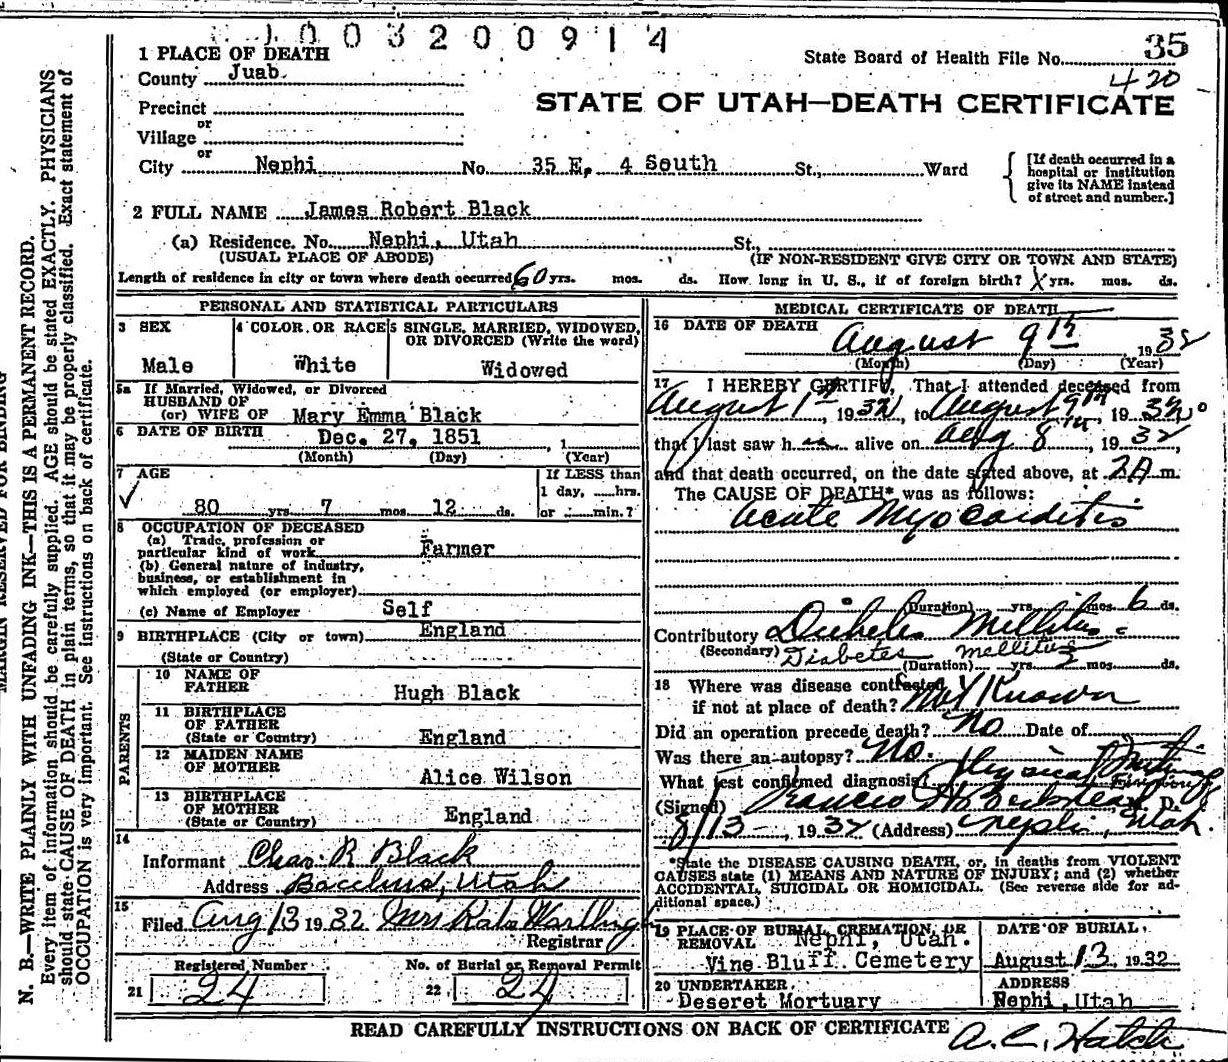 0 0 3 2 0 0 9 1 4
1 PLACE OF DEATH
State Board of Health File No. 35
County Juab.
420
Precinct
STATE OF UTAH—DEATH CERTIFICATE
or
Village
or
City Nephi No. 35 E, 4 South St., Ward
{ [If death occurred in a
hospital or institution
give its NAME instead
of street and number.]
2 FULL NAME James Robert Black
(a) Residence. No. Nephi, Utah St.,
(USUAL PLACE OF ABODE) (IF NON-RESIDENT GIVE CITY OR TOWN AND STATE)
Length of residence in city or town where death occurred 60 yrs. mos. ds. How long in U. S., if of foreign birth? X yrs. mos. ds.
PERSONAL AND STATISTICAL PARTICULARS
3 SEX
Male
4 COLOR OR RACE
White
5 SINGLE, MARRIED, WIDOWED,
OR DIVORCED (Write the word)
Widowed
5a If Married, Widowed, or Divorced
HUSBAND OF
(or) WIFE OF Mary Emma Black
6 DATE OF BIRTH Dec. 27, 1851 , 1
(Month) (Day) (Year)
7 AGE
80 yrs. 7 mos. 12 ds.
If LESS than
1 day, ......hrs.
or ......min.?
8 OCCUPATION OF DECEASED
(a) Trade, profession or
particular kind of work Farmer
(b) General nature of industry,
business, or establishment in
which employed (or employer)
(c) Name of Employer Self
9 BIRTHPLACE (City or town) England
(State or Country)
PARENTS
10 NAME OF
FATHER Hugh Black
11 BIRTHPLACE
OF FATHER
(State or Country) England
12 MAIDEN NAME
OF MOTHER Alice Wilson
13 BIRTHPLACE
OF MOTHER
(State or Country) England
14
Informant Chas. R Black
Address Bacchus, Utah
15
Filed Aug 13 1932 Mrs
Registrar
Registered Number
21 24
No. of Burial or Removal Permit
22 24
MEDICAL CERTIFICATE OF DEATH
16 DATE OF DEATH
August 9th 1932
(Month) (Day) (Year)
17 I HEREBY CERTIFY, That I attended deceased from
August 1st, 1932, to August 9th, 1932
that I last saw h alive on Aug 8th, 1932,
and that death occurred, on the date stated above, at 2A m.
The CAUSE OF DEATH* was as follows:
Acute Myocarditis
(Duration) yrs. mos. 6 ds.
Contributory Diabetes Mellitus
(Secondary) Diabetes mellitus
(Duration) yrs. mos. ds.
18 Where was disease contracted
if not at place of death? Not Known
Did an operation precede death? No Date of
Was there an autopsy? No.
What test confirmed diagnosis? Physical
(Signed) Francis M. D.
8/13-, 1932 (Address) Nephi, Utah.
*State the DISEASE CAUSING DEATH, or, in deaths from VIOLENT
CAUSES state (1) MEANS AND NATURE OF INJURY; and (2) whether
ACCIDENTAL, SUICIDAL OR HOMICIDAL. (See reverse side for ad-
ditional space.)
19 PLACE OF BURIAL, CREMATION, OR
REMOVAL Nephi, Utah.
Vine Bluff Cemetery
DATE OF BURIAL
August 13, 1932
20 UNDERTAKER
Deseret Mortuary
ADDRESS
Nephi, Utah
READ CAREFULLY INSTRUCTIONS ON BACK OF CERTIFICATE
A. C. Hatch
MARGIN RESERVED FOR BINDING
N. B.—WRITE PLAINLY WITH UNFADING INK—THIS IS A PERMANENT RECORD.
Every item of information should be carefully supplied. AGE should be stated EXACTLY. PHYSICIANS
should state CAUSE OF DEATH in plain terms, so that it may be properly classified. Exact statement of
OCCUPATION is very important. See instructions on back of certificate.